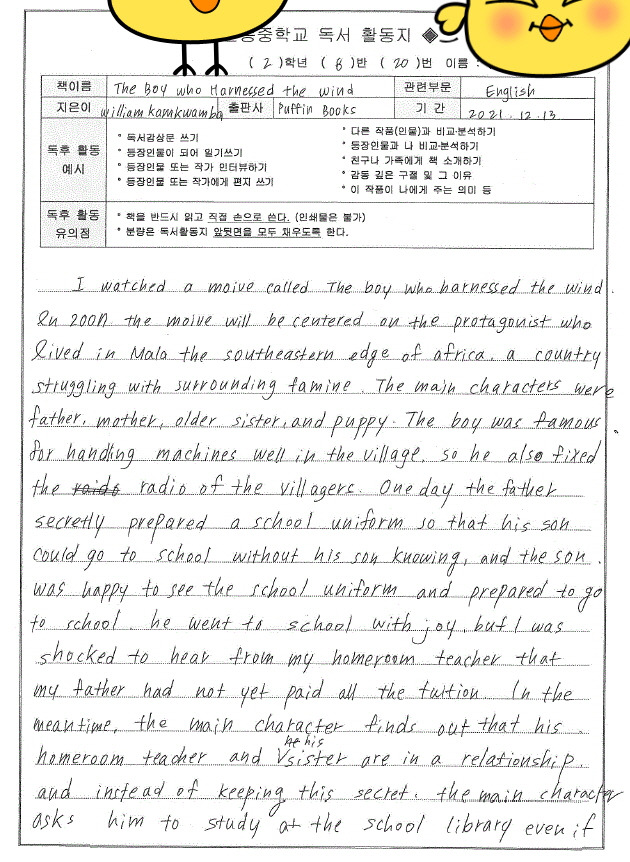 중학교 독서 활동지 ◈
( 2 )학년 ( 8 )반 ( 20 )번 이름 :
책이름 The Boy who Harnessed the wind 관련부문 English
지은이 william kamkwamba 출판사 Puffin Books 기 간 2021. 12. 13.
독후 활동 예시
° 독서감상문 쓰기
° 등장인물이 되어 일기쓰기
° 등장인물 또는 작가 인터뷰하기
° 등장인물 또는 작가에게 편지 쓰기
° 다른 작품(인물)과 비교·분석하기
° 등장인물과 나 비교·분석하기
° 친구나 가족에게 책 소개하기
° 감동 깊은 구절 및 그 이유
° 이 작품이 나에게 주는 의미 등
독후 활동 유의점
° 책을 반드시 읽고 직접 손으로 쓴다. (인쇄물은 불가)
° 분량은 독서활동지 앞뒷면을 모두 채우도록 한다.
I watched a moive called The boy who harnessed the wind.
In the moive will be centered on the protagonist who
lived in Mala the southeastern edge of africa. a country
struggling with surrounding famine. The main characters were
father, mother, older sister, and puppy. The boy was famous
for handling machines well in the village, so he also fixed
the radio of the villagers. One day the father
secretly prepared a school uniform so that his son
could go to school without his son knowing, and the son.
was happy to see the school uniform and prepared to go
to school. he went to school with joy, but I was
shocked to hear from my homeroom teacher that
my father had not yet paid all the tuition. In the
meantime, the main character finds out that his.
homeroom teacher and he his sister are in a relationship.
and instead of keeping this secret. the main character
asks him to study at the school library even if